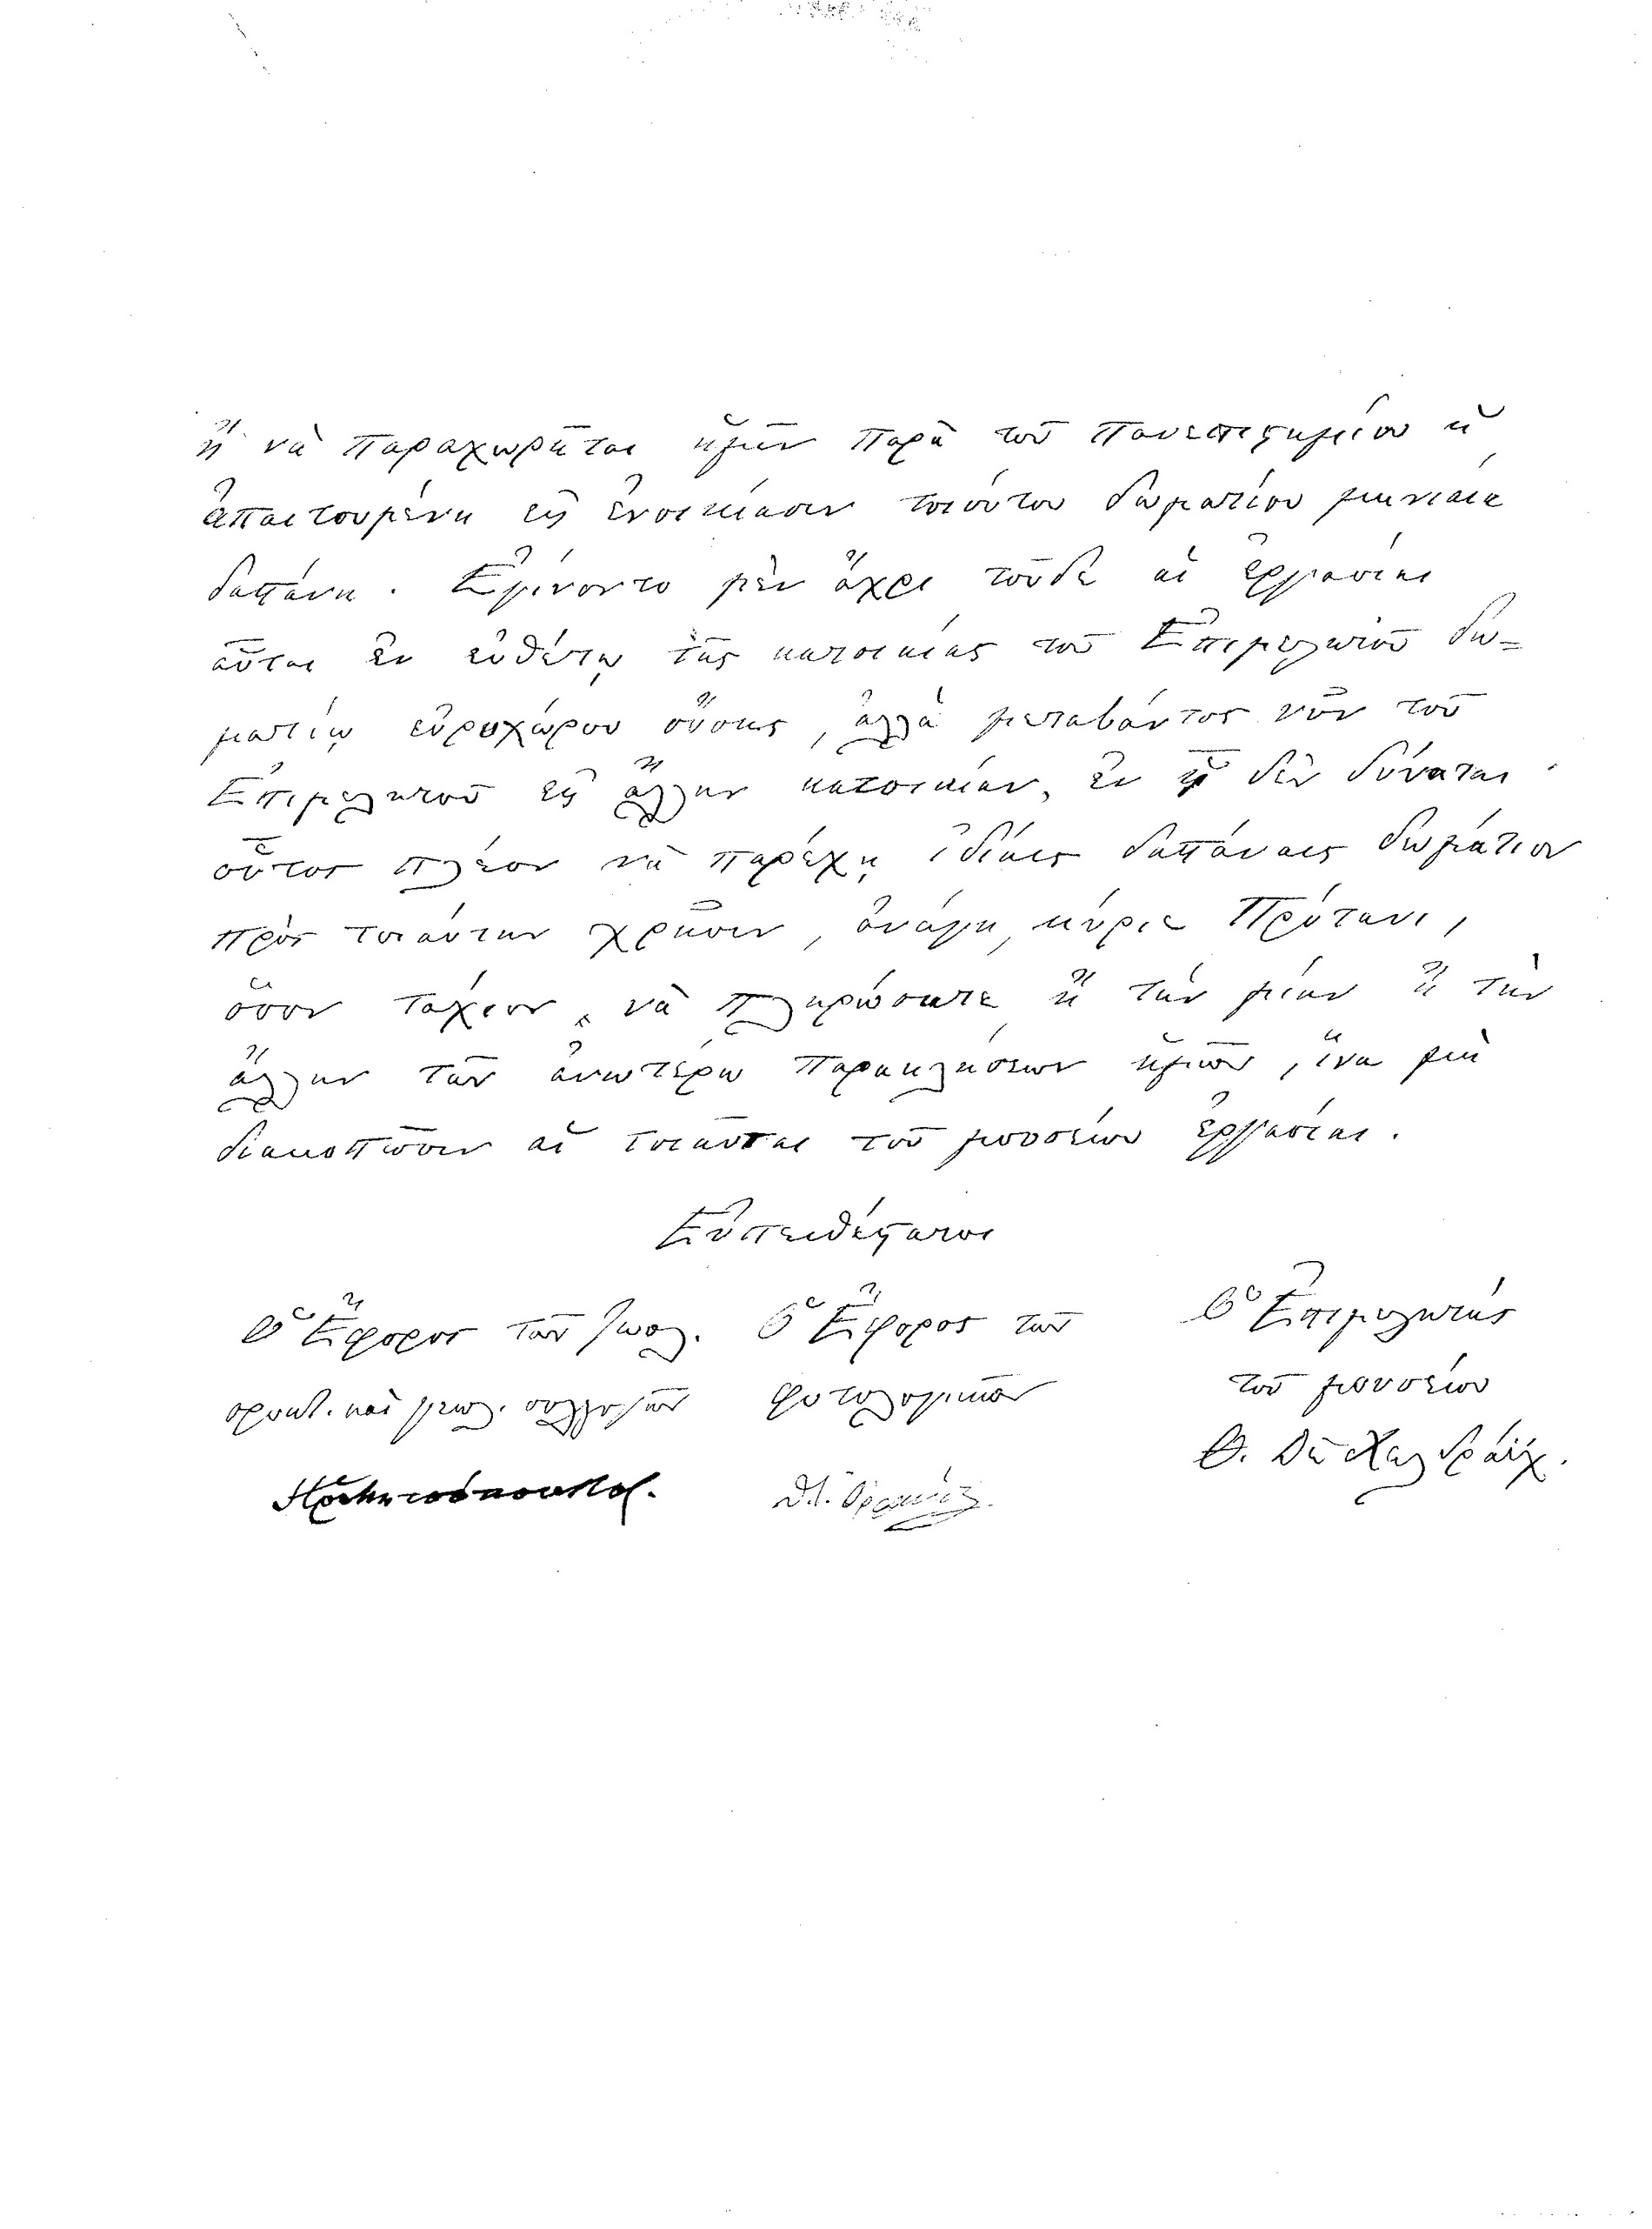 ἢ νὰ παραχωρῆται ἡμῖν παρὰ τοῦ Πανεπιστημίου ἡ
ἀπαιτουμένη εἰς ἐνοικίασιν τοιούτου δωματίου μηνιαία
δαπάνη. Ἐγίνοντο μὲν ἄχρι τοῦδε αἱ ἐργασίαι
αὗται ἐν εὐθέτῳ τῆς κατοικίας τοῦ Ἐπιμελητοῦ δω-
ματίῳ εὐρυχώρου οὔσης, ἀλλὰ μεταβάντος νῦν τοῦ
Ἐπιμελητοῦ εἰς ἄλλην κατοικίαν, ἐν ᾗ δὲν δύναται
οὗτος πλέον νὰ παρέχῃ ἰδίαις δαπάναις δωμάτιον
πρὸς τοιαύτην χρῆσιν, ἀνάγκη, κύριε Πρύτανι,
ὅσον τάχιον, νὰ πληρώσητε ἢ τὴν μίαν ἢ τὴν
ἄλλην τῶν ἀνωτέρω παρακλήσεων ἡμῶν, ἵνα μὴ
διακοπῶσιν αἱ τοιαῦται τοῦ μουσείου ἐργασίαι.
Εὐπειθέστατοι
Ὁ Ἔφορος τῶν ζωολ. Ὁ Ἔφορος τῶν Ὁ Ἐπιμελητὴς
ὀρυκτ. καὶ γεωλ. συλλογῶν φυτολογικῶν τοῦ μουσείου
Θ. Δὲ Χελδράϊχ.